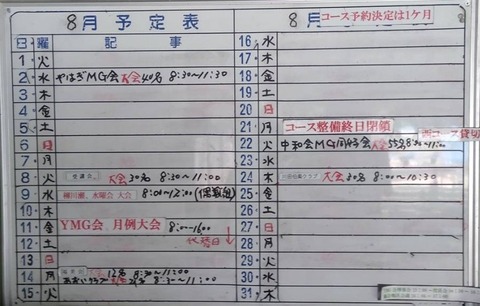 8月予定表
日 曜 記事
1 火
2 水 やはぎMG会 大会 40名 8:30~11:30
3 木
4 金
5 土
6 日
7 月
8 火 大会 30名 8:30~11:00
9 水 柳川瀬、水曜会 大会 8:00~12:00
10 木
11 金 YMG会 月例大会 8:00~16:00
12 土
13 日
14 月 大会 12名 8:30~11:00
15 火
8月 コース予約決定は1ケ月
16 水
17 木
18 金
19 土
20 日
21 月 コース整備終日閉鎖
西コース貸切
22 火 中和会MG同好会 大会 55名 8:30~11:00
23 水
24 木 大会 30名 8:30~11:00
25 金
26 土
27 日
28 月
29 火
30 水
31 木